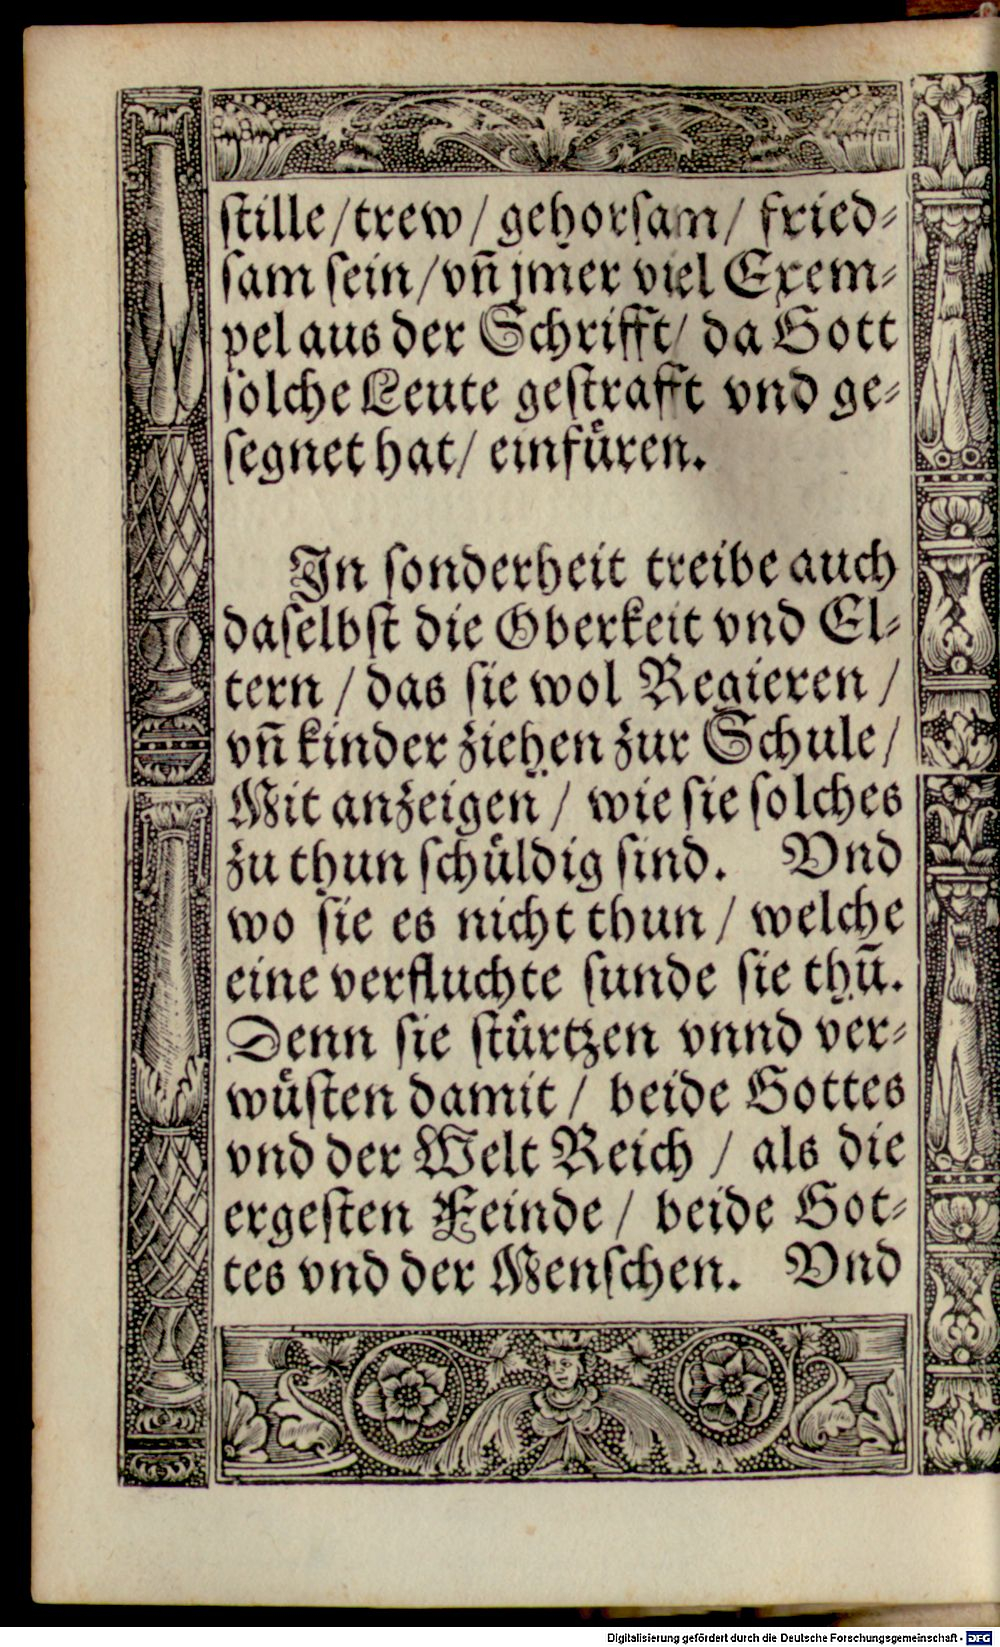 stille / trew / gehorsam / fried⸗
sam sein / vñ jmer viel Exem⸗
pel aus der Schrifft / da Gott
solche Leute gestrafft vnd ge⸗
segnet hat / einfüren.
In sonderheit treibe auch
daselbst die Oberkeit vnd El⸗
tern / das sie wol Regieren /
vñ kinder ziehen zur Schule /
Mit anzeigen / wie sie solches
zu thun schüldig sind. Vnd
wo sie es nicht thun / welche
eine verfluchte sunde sie thū.
Denn sie stürtzen vnnd ver⸗
wüsten damit / beide Gottes
vnd der Welt Reich / als die
ergesten Feinde / beide Got⸗
tes vnd der Menschen. Vnd
Digitalisierung gefördert durch die Deutsche Forschungsgemeinschaft - DFG